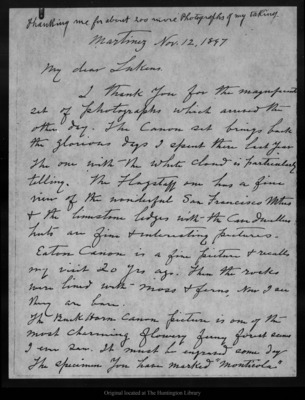 thanking me for about 200 more Photographs of my taking
Martinez Nov. 12, 1897
My dear Lukens
I thank You for the magnificent
set of photographs which arrived the
other day. The Canon set brings back
the glorious days I spent there last year
The one with the white cloud is particularly
telling. The Flagstaff one has a fine
view of the wonderful San Francisco Mtns
& the limestone ledges with the
huts are fine & interesting pictures.
Eaton Canon is a fine picture & recalls
my visit 20 yrs ago. Then the rocks
were lined with moss & ferns, Now I see
they are bare.
The Buck Horn Canon picture is one of the
most charming flowery ferny forest scenes
I ever saw. It must be engraved some day
The specimen You have marked "Monticola"
Original located at The Huntington Library